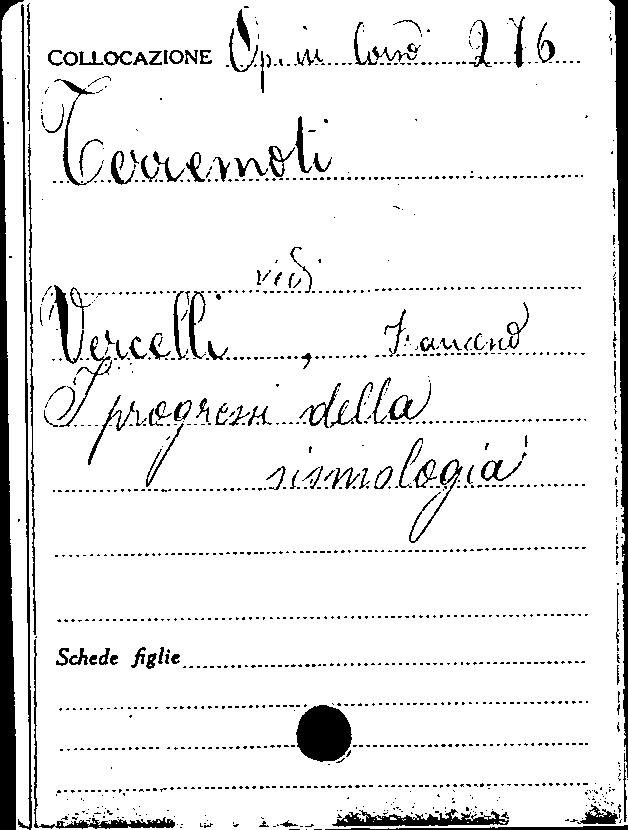 COLLOCAZIONE Op. in Corso 276
Terremoti
vedi
Vercelli, Francesco
I progressi della
sismologia
Schede figlie